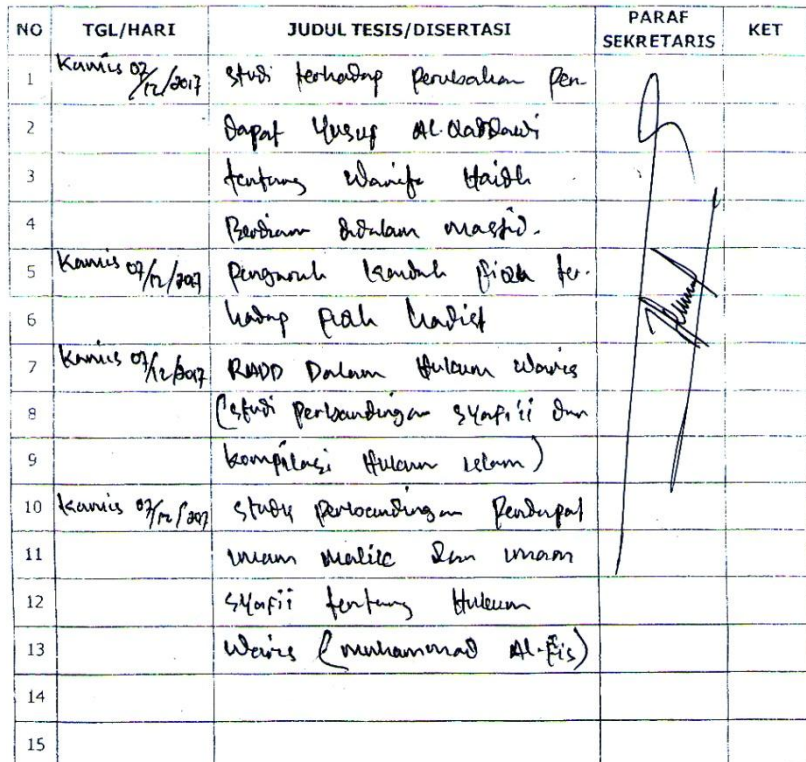 NO TGL/HARI JUDUL TESIS/DISERTASI PARAF SEKRETARIS KET
1 Kamis 07/12/2017 studi terhadap perubahan pen-
2 dapat Yusuf Al-Qaddawi
3 tentang Wanita Haidh
4 Berdiam didalam masjid.
5 Kamis 07/12/2017 Pengaruh kaidah fiqh ter-
6 hadap fiqh hadist
7 Kamis 07/12/2017 RADD Dalam Hukum Waris
8 (studi perbandingan syafi'i dan
9 kompilasi Hukum islam)
10 Kamis 07/12/2017 study perbandingan Pendapat
11 imam malik dan imam
12 syafii tentang Hukum
13 Waris (muhammad Al-)
14
15